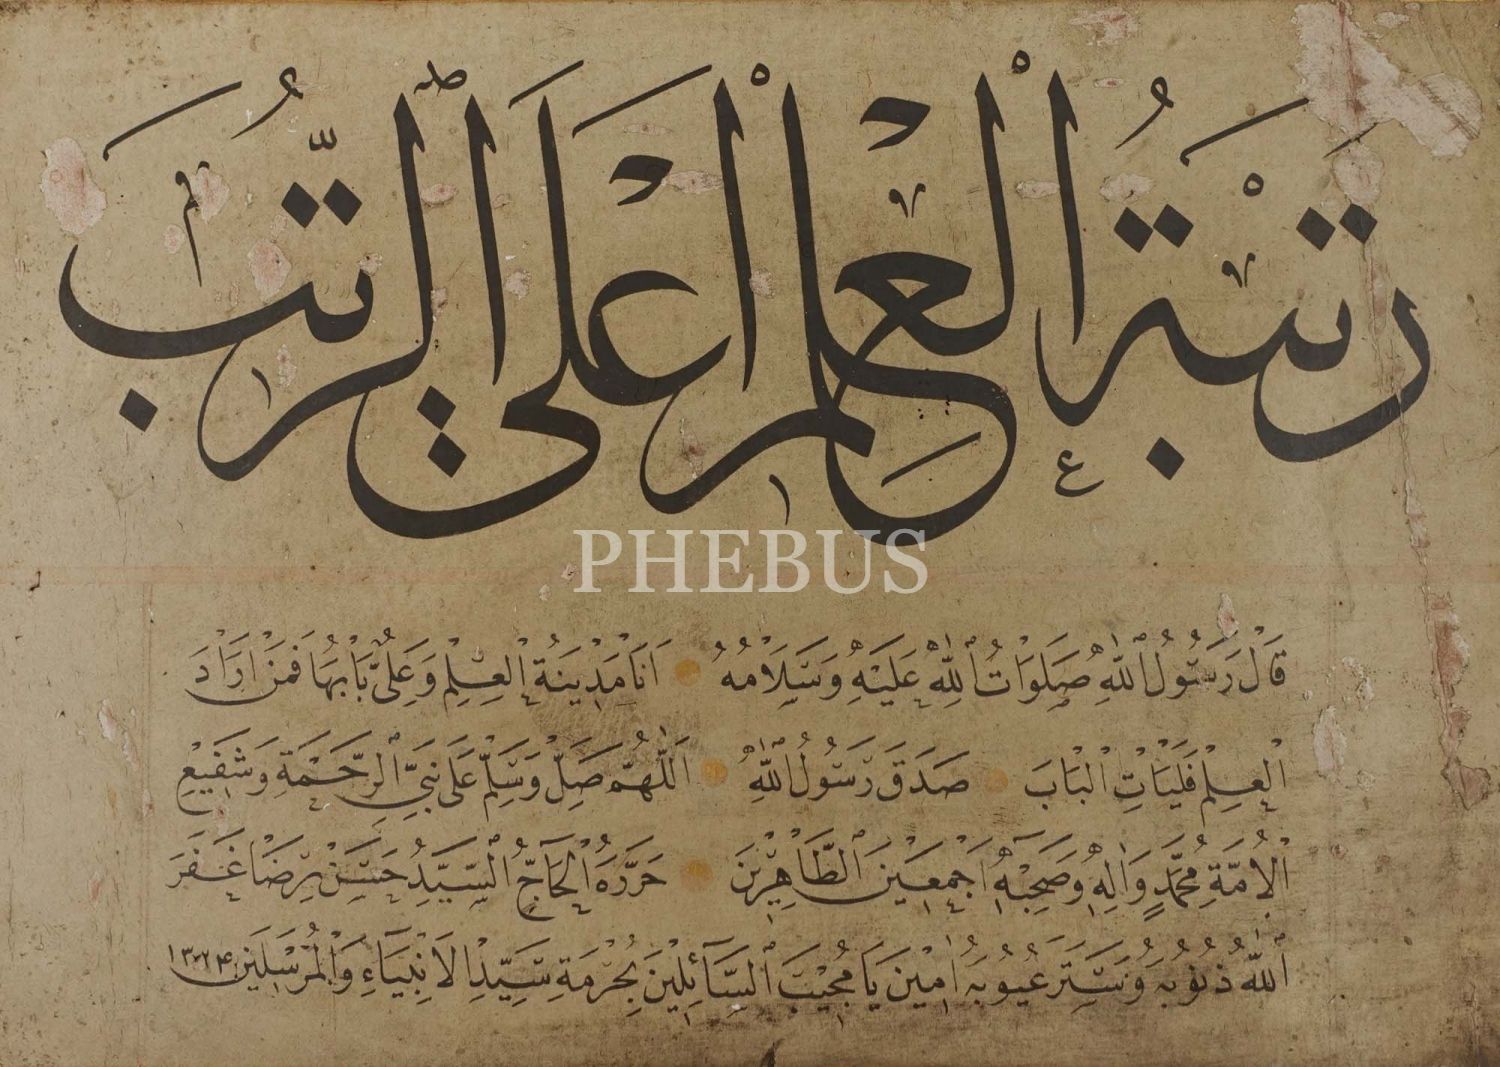 رُتْبَةُ الْعِلْمِ أَعْلَى الرُّتَبِ
PHEBUS
قَالَ رَسُولُ اللّٰهِ صَلَوَاتُ اللّٰهِ عَلَيْهِ وَسَلَامُهُ اَنَا مَدِينَةُ الْعِلْمِ وَعَلِىٌّ بَابُهَا فَمَنْ اَرَادَ
الْعِلْمَ فَلْيَاْتِ الْبَابَ صَدَقَ رَسُولُ اللّٰهِ اَللّٰهُمَّ صَلِّ وَسَلِّمْ عَلَى نَبِىِّ الرَّحْمَةِ وَشَفِيعِ
الْاُمَّةِ مُحَمَّدٍ وَاٰلِهِ وَصَحْبِهِ اَجْمَعِينَ الطَّاهِرِينَ حَرَّرَهُ الْحَاجُّ السَّيِّدُ حَسَنْ رِضَا غَفَرَ
اللّٰهُ ذُنُوبَهُ وَسَتَرَ عُيُوبَهُ اٰمِينَ يَا مُجِيبَ السَّآئِلِينَ بِحُرْمَةِ سَيِّدِ الْاَنْبِيَاءِ وَالْمُرْسَلِينَ